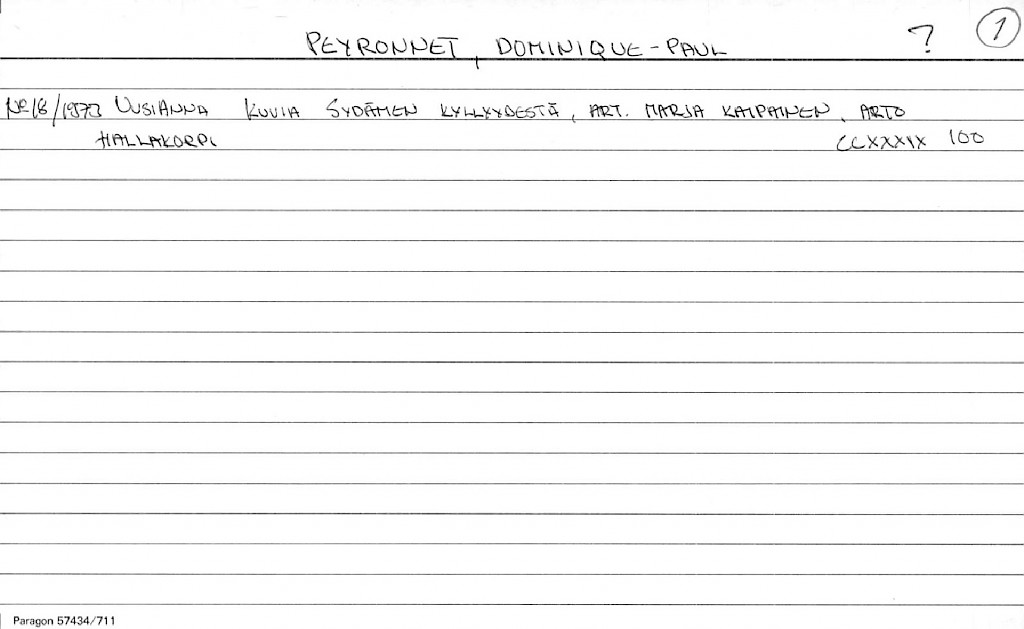 PEYRONNET, DOMINIQUE-PAUL ? 1
No 18/1973 UUSI ANNA KUVIA SYDÄMEN KYLLYYDESTÄ, ART. MARJA KAIPAINEN, ARTO
HALLAKORPI CCXXXIX 100
Paragon 57434/711